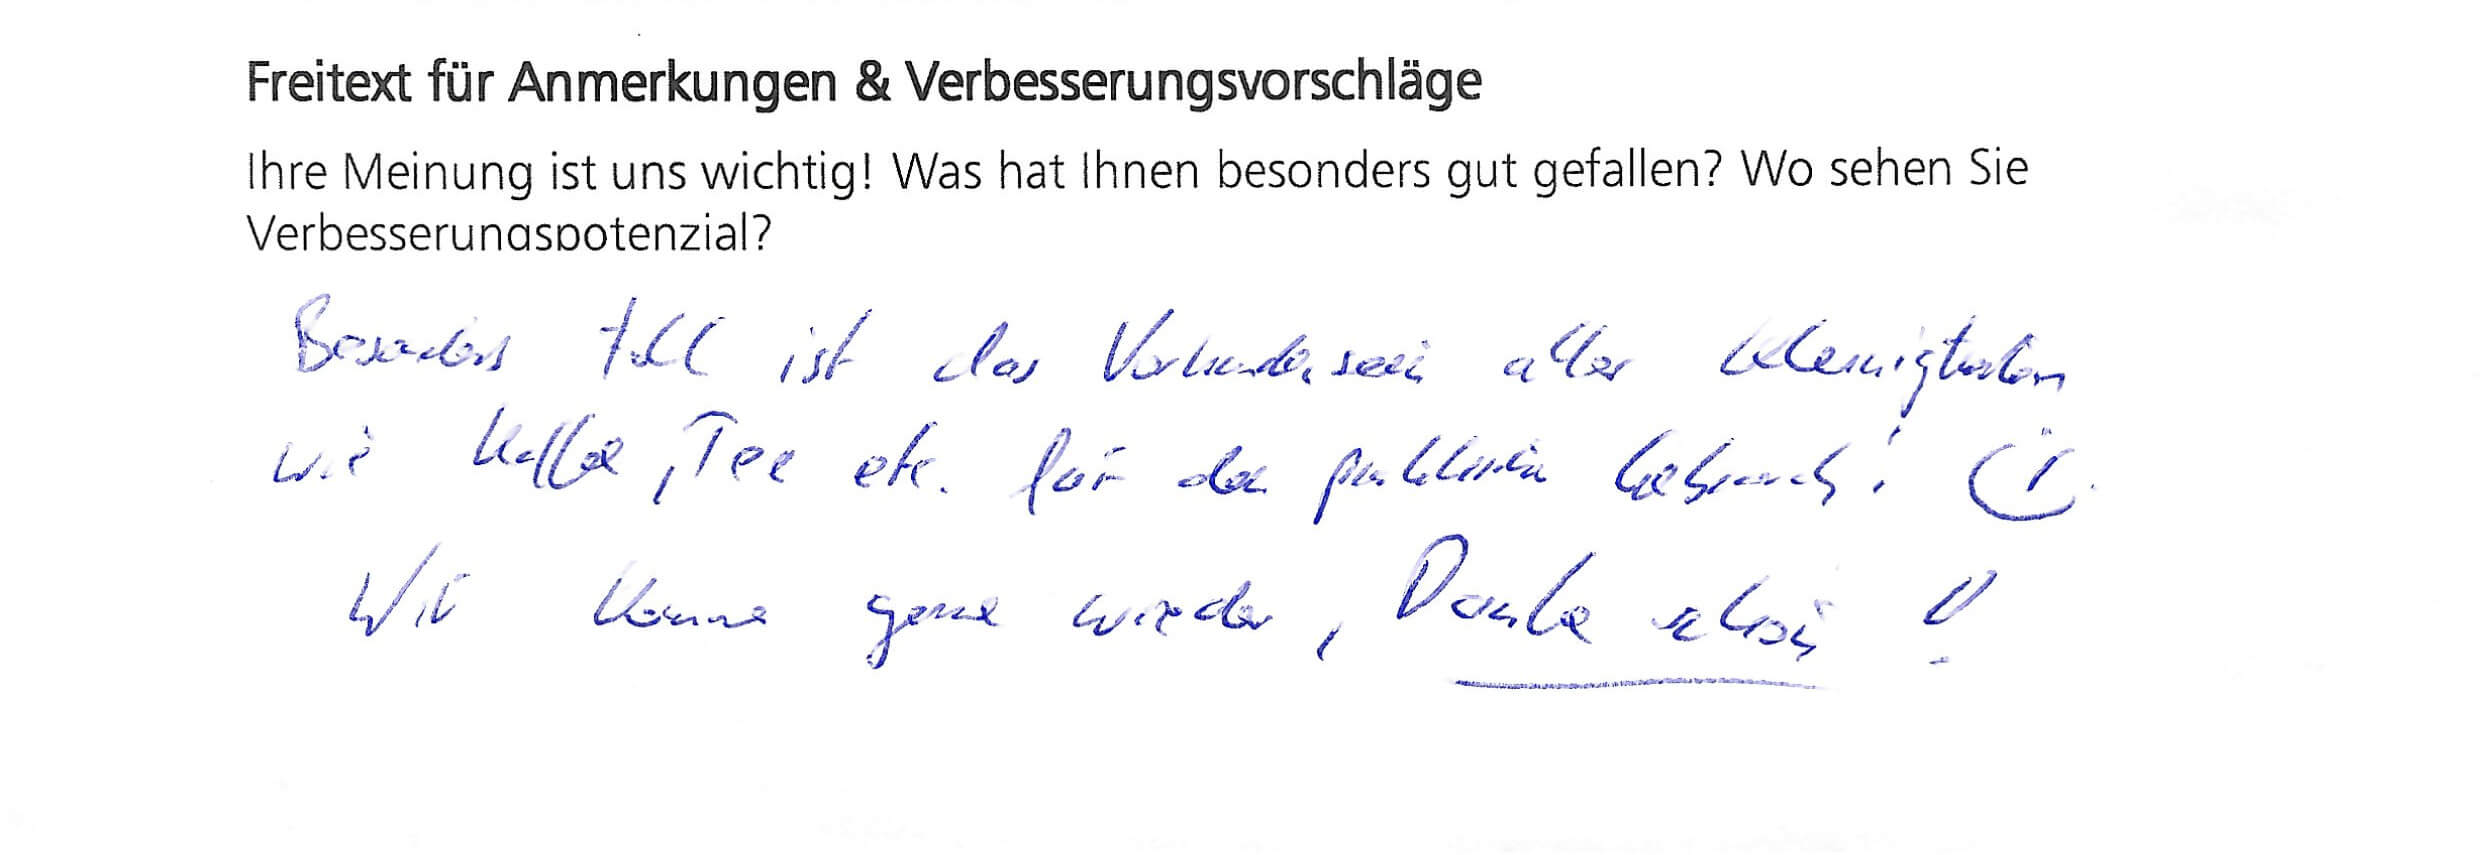 Freitext für Anmerkungen & Verbesserungsvorschläge
Ihre Meinung ist uns wichtig! Was hat Ihnen besonders gut gefallen? Wo sehen Sie
Verbesserungspotenzial?
Besonders toll ist das Vorhandensein aller Kleinigkeiten
wie Kaffee, Tee etc. für den Gebrauch!
Wir kommen gerne wieder, Danke schön!!